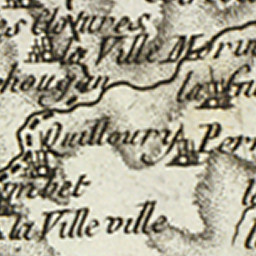 es Clotures
la Ville Morin
hougan
la
Quilloury Perr
mbet
la Ville ville